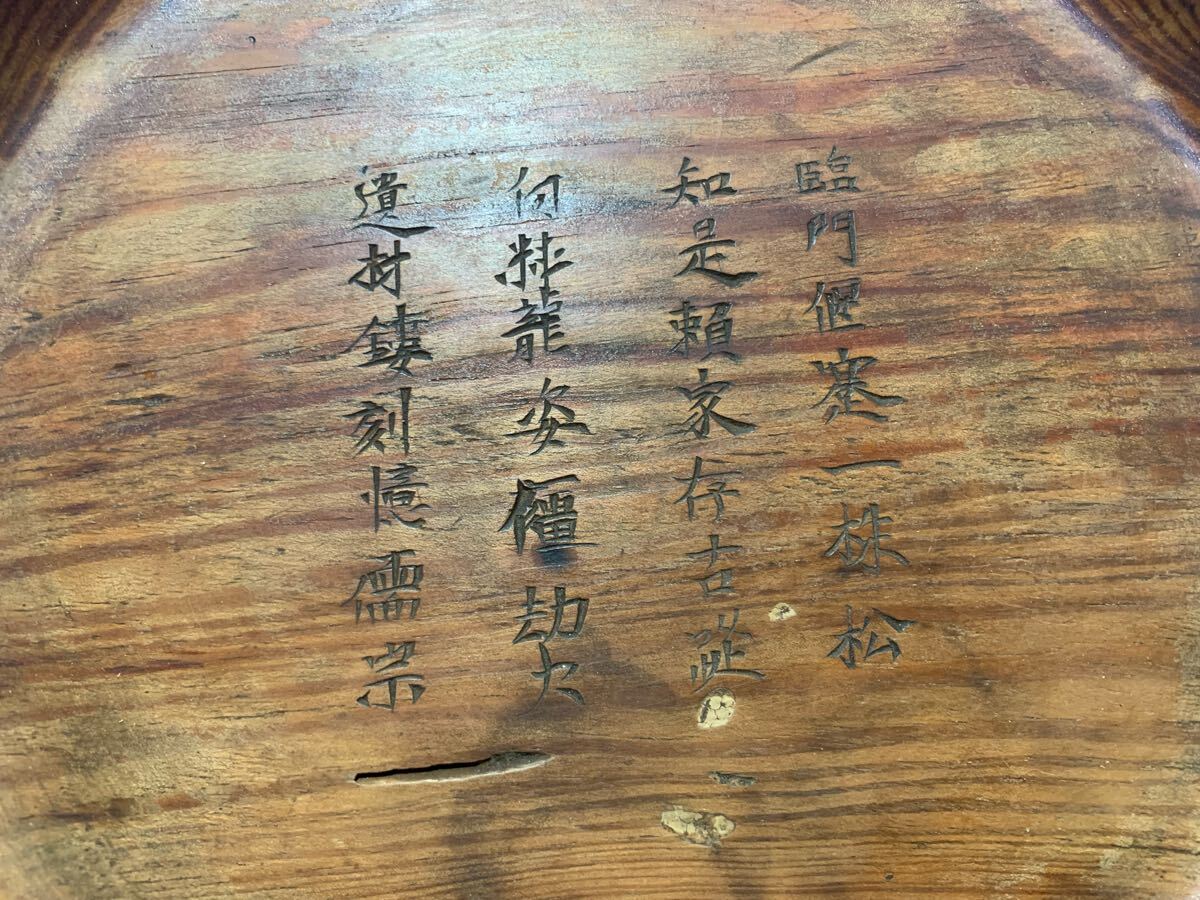 臨門偃蹇一株松
知是賴家存古蹤
何料龍姿僵劫火
遺材鏤刻憶儒宗